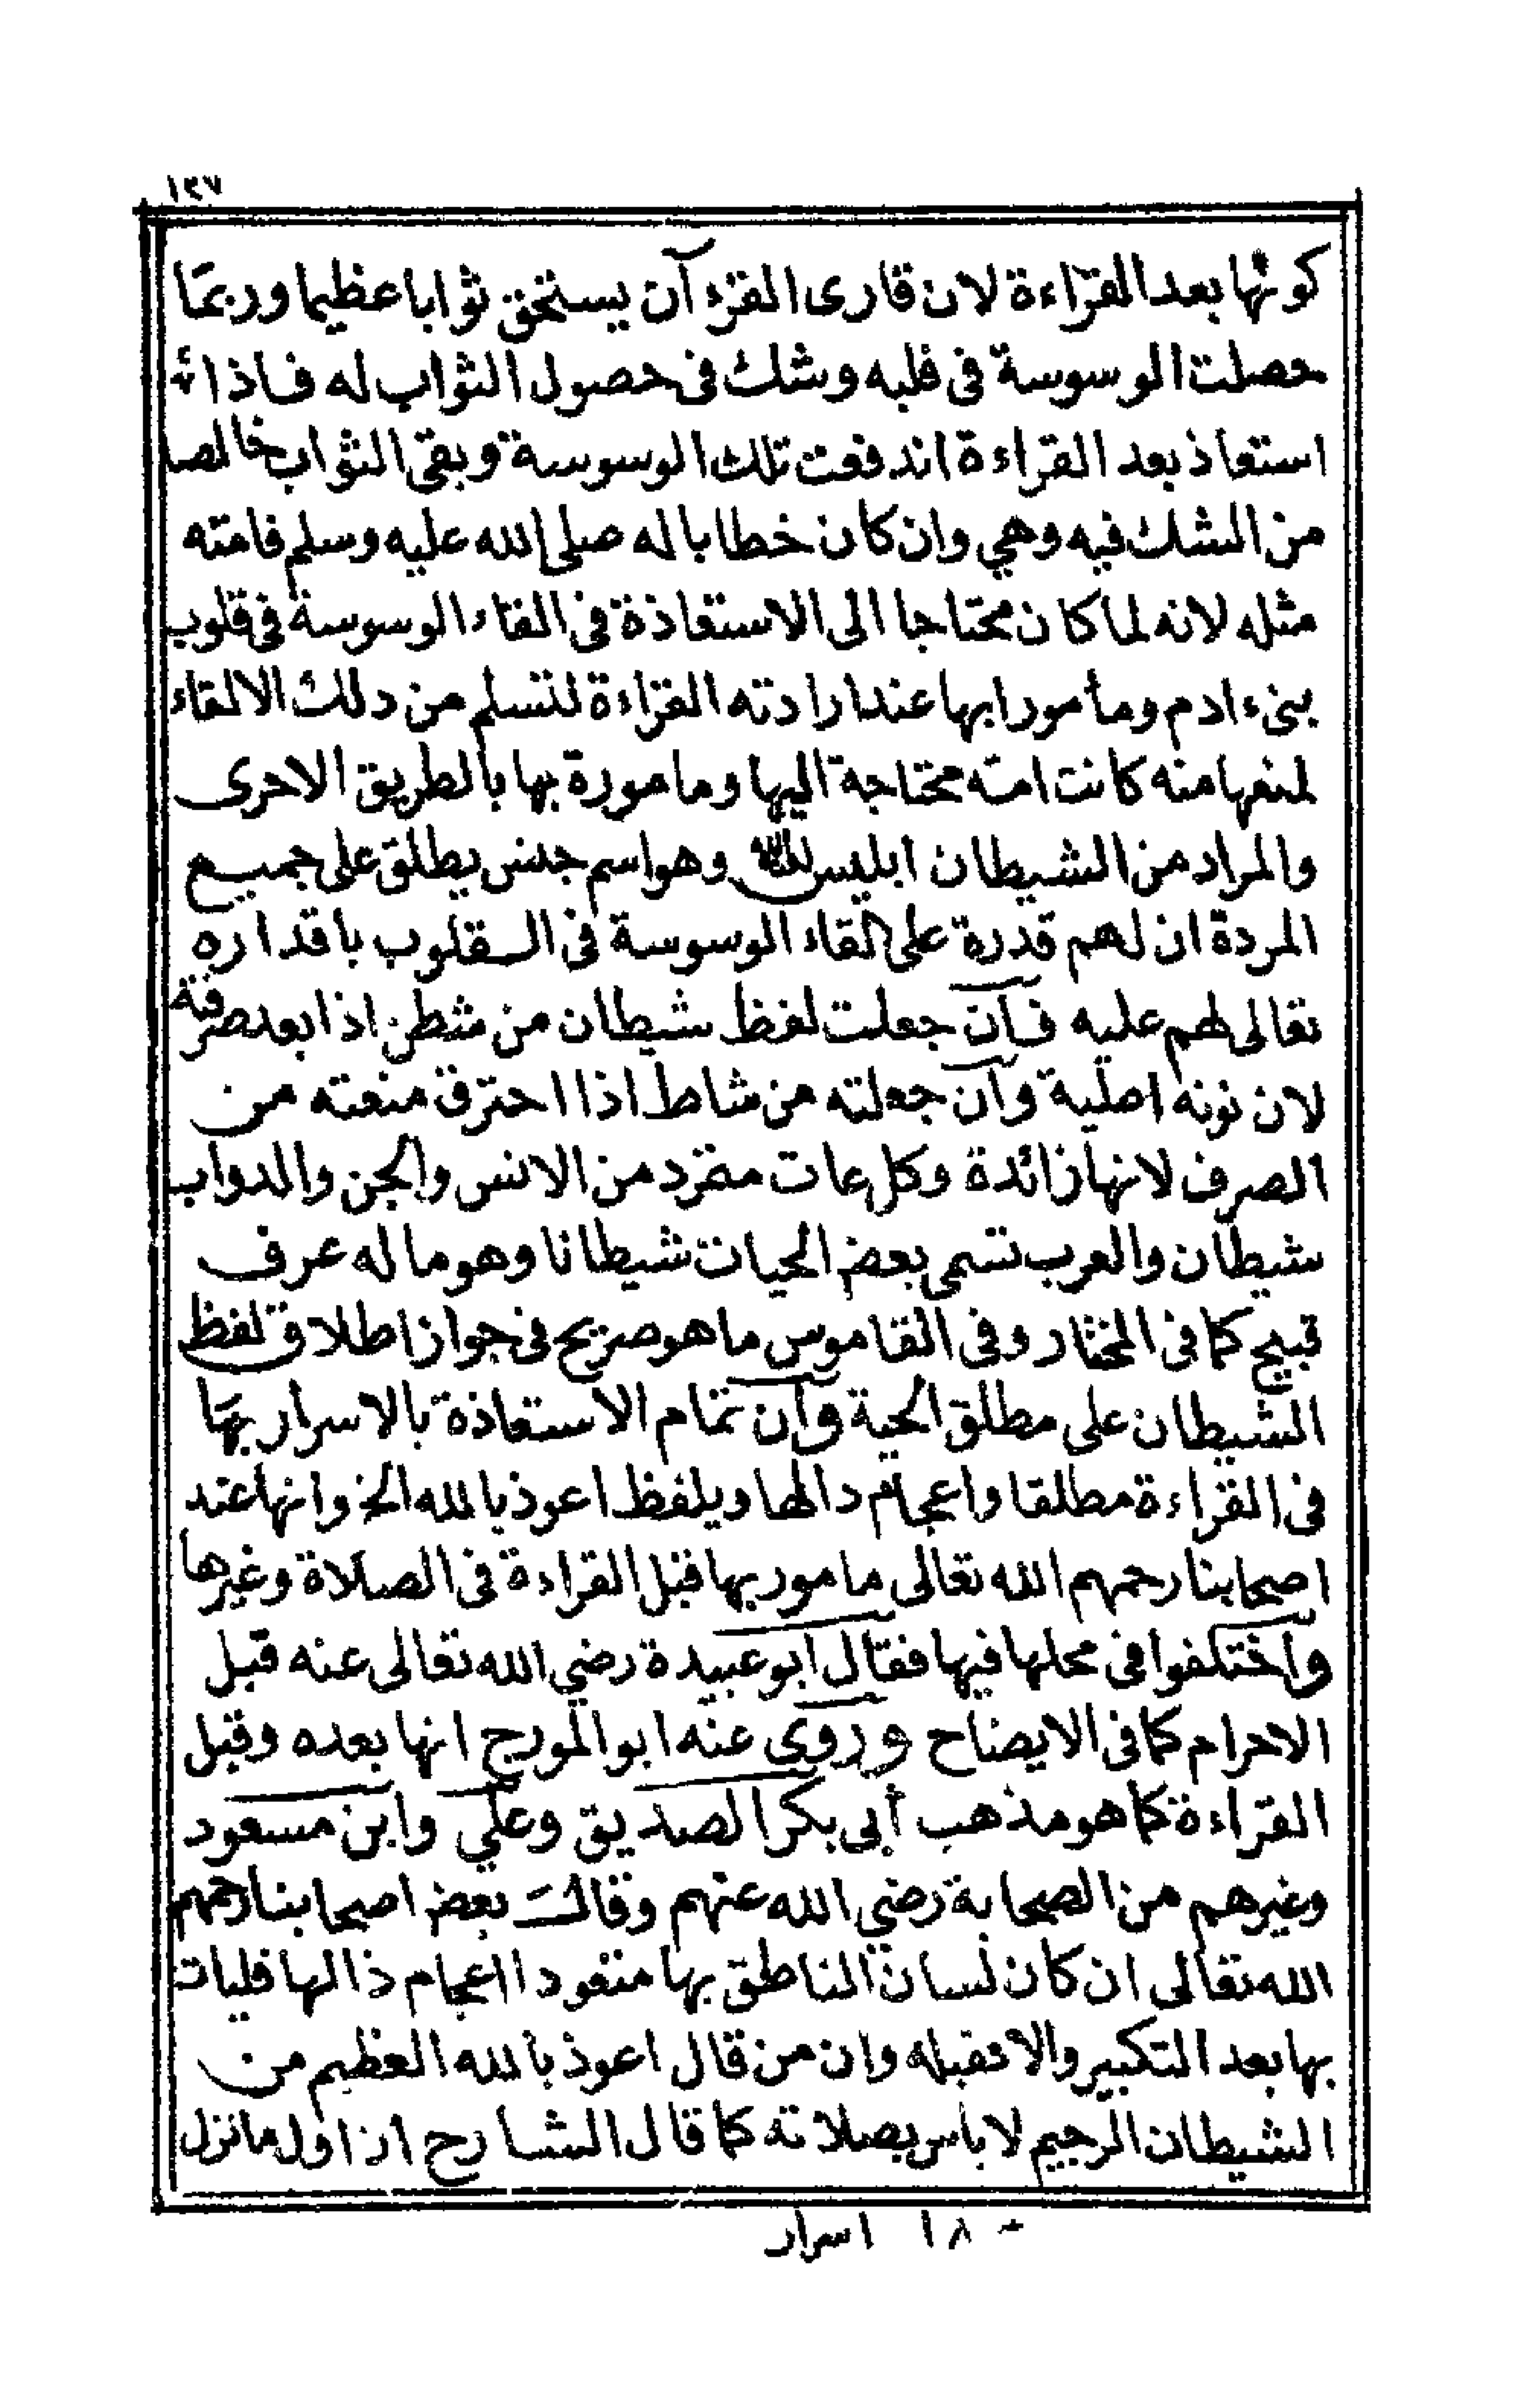 ١٣٧
كونها بعد القرّاءة لان قارى القرءآن يستحق ثوابا عظيما وربمّا
حصلت الوسوسة فى قلبه وشك فى حصول الثواب له فاذا
استعاذ بعد القراءة اندفعت تلك الوسوسة وبقى الثواب خالصا
من الشك فيه وهي وان كان خطابا له صلى الله عليه وسلم فامته
مثله لانه لما كان محتاجا الى الاستعاذة فى القاء الوسوسة فى قلوب
بنىء ادم ومأمورا بها عند ارادته القراءة لتسلم من ذلك الالقاء
لمنعها منه كانت امته محتاجة اليها ومامورة بها بالطريق الاحرى
والمراد من الشيطان ابليس وهو اسم جنس يطلق على جميع
المردة ان لهم قدرة على القاء الوسوسة فى القلوب باقداره
تعالى لهم عليه فان جعلت لفظ شيطان من شطن اذا بعد صرفته
لان نونه اصلية وان جعلته من شاط اذا احترق منعته من
الصرف لانها زائدة وكل عات متمرد من الانس والجن والدواب
شيطان والعرب تسمى بعض الحيات شيطانا وهو ما له عرف
قبيح كما فى المختار وفى القاموس ما هو صريح فى جواز اطلاق لفظ
الشيطان على مطلق الحية وان تمام الاستعاذة بالاسرار بها
فى القراءة مطلقا واعجام دالها ويلفظ اعوذ بالله الخ وانها عند
اصحابنا رحمهم الله تعالى مامور بها قبل القراءة فى الصلاة وغيرها
واختلفوا فى محلها فيها فقال ابو عبيدة رضي الله تعالى عنه قبل
الاحرام كما فى الايضاح وروى عنه ابو المورج انها بعده وقبل
القراءة كما هو مذهب أبى بكر الصديق وعلي وابن مسعود
وغيرهم من الصحابة رضي الله عنهم وقال بعض اصحابنا رحمهم
الله تعالى ان كان لسان الناطق بها متعودا اعجام ذالها فليات
بها بعد التكبير والا فقبله وان من قال اعوذ بالله العظيم من
الشيطان الرجيم لا باس بصلاته كما قال الشارح ان اول ما نزل
١٨ اسرار